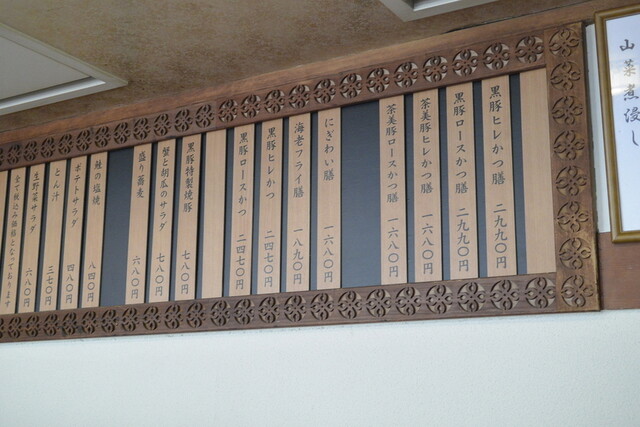 山菜煮浸し
黒豚ヒレかつ膳 二九九〇円
黒豚ロースかつ膳 二九九〇円
茶美豚ヒレかつ膳 一六八〇円
茶美豚ロースかつ膳 一六八〇円
にぎわい膳 一六八〇円
海老フライ膳 一八九〇円
黒豚ヒレかつ 二四七〇円
黒豚ロースかつ 二四七〇円
黒豚特製焼豚 七八〇円
蟹と胡瓜のサラダ 七八〇円
盛り蕎麦 六八〇円
鮭の塩焼 八四〇円
ポテトサラダ 四八〇円
とん汁 三七〇円
生野菜サラダ 六八〇円
全て税込み価格となっております